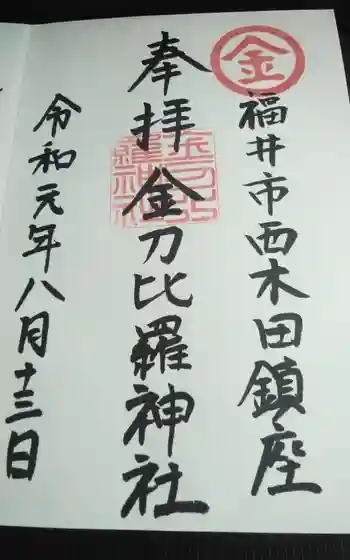 金
福井市西木田鎮座
奉拝
金刀比羅神社
令和元年八月十三日